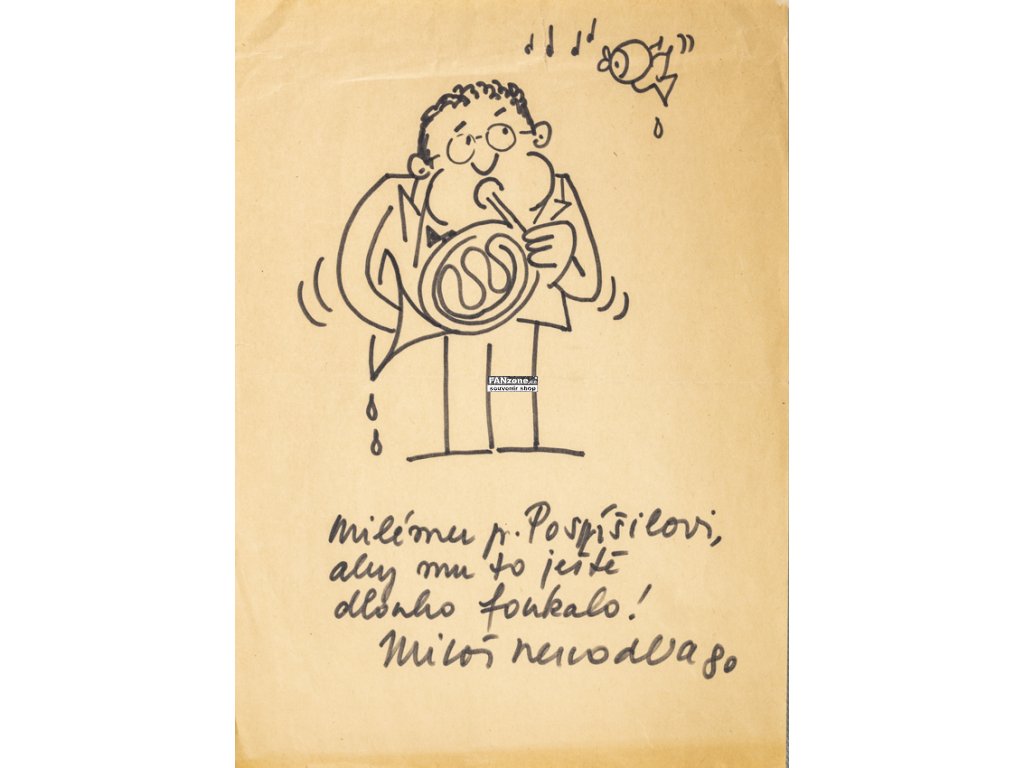 FANzone.cz
souvenir shop
milému p. Pospíšilovi,
aby mu to ještě
dlouho foukalo!
Miloš Nesvadba 80